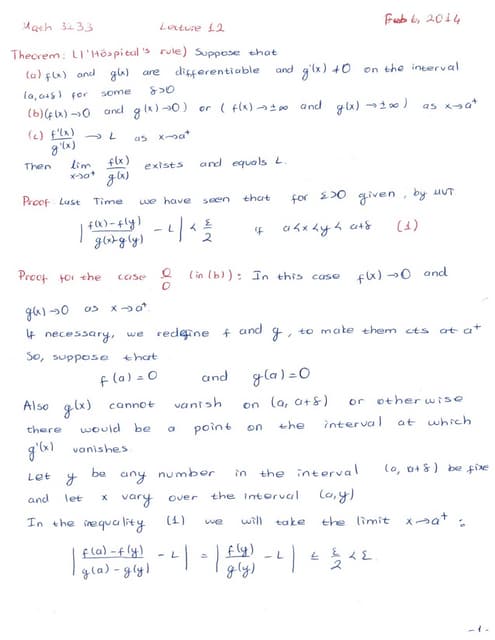 Math 3233 Lecture 12 Feb 6, 2014
Theorem: (l'Hôspital's rule) Suppose that
(a) f(x) and g(x) are differentiable and g'(x) ≠ 0 on the interval
(a, a+δ) for some δ>0
(b) (f(x) → 0 and g(x) → 0) or (f(x) → ±∞ and g(x) → ±∞) as x→a⁺
(c) f'(x)/g'(x) → L as x→a⁺
Then lim x→a⁺ f(x)/g(x) exists and equals L.
Proof Last Time we have seen that for ε>0 given, by MVT
| (f(x)-f(y))/(g(x)-g(y)) - L | < ε/2 if a<x<y<a+δ (1)
Proof for the case 0/0 (in (b)): In this case f(x)→0 and
g(x)→0 as x→a⁺.
If necessary, we redefine f and g, to make them cts at a⁺
So, suppose that
f(a)=0 and g(a)=0
Also g(x) cannot vanish on (a, a+δ) or otherwise
there would be a point on the interval at which
g'(x) vanishes.
Let y be any number in the interval (a, a+δ) be fixe
and let x vary over the interval (a,y)
In the inequality (1) we will take the limit x→a⁺:
| (f(a)-f(y))/(g(a)-g(y)) - L | = | f(y)/g(y) - L | ≤ ε/2 < ε.
-1-